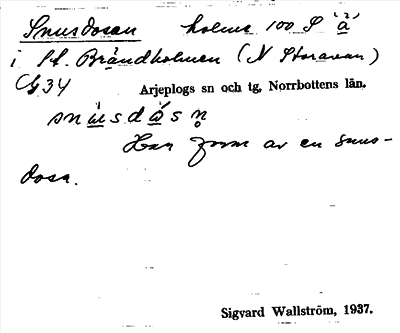 Snusdosan holme 100 S "å"
i St. Brändholmen (N Storavan)
G34 Arjeplogs sn och tg, Norrbottens län.
snusdåsn
Har form av en snus-
dosa.
Sigvard Wallström, 1937.